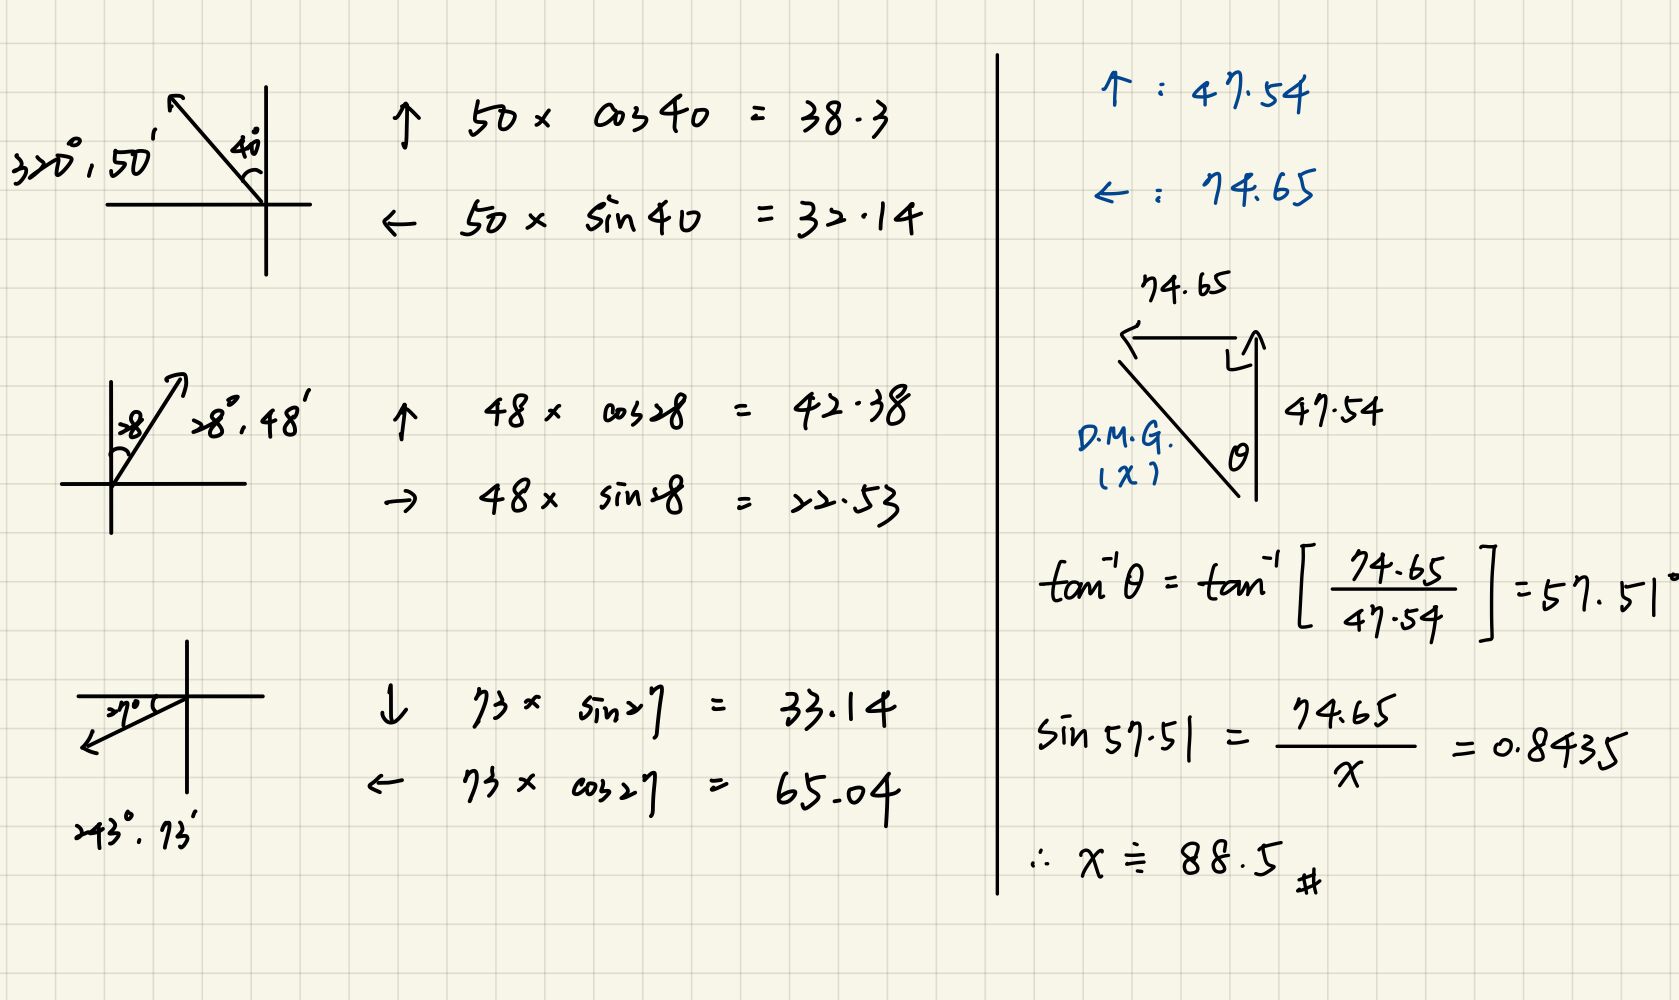 320°, 50'
40°
↑ 50 × cos40 = 38.3
← 50 × sin40 = 32.14
28
28°, 48'
↑ 48 × cos28 = 42.38
→ 48 × sin28 = 22.53
27°
243°, 73'
↓ 73 × sin27 = 33.14
← 73 × cos27 = 65.04
↑ : 47.54
← : 74.65
74.65
47.54
θ
D.M.G.
(x)
tan⁻¹θ = tan⁻¹ [ 74.65 / 47.54 ] = 57.51°
sin 57.51 = 74.65 / x = 0.8435
∴ x ≑ 88.5 #